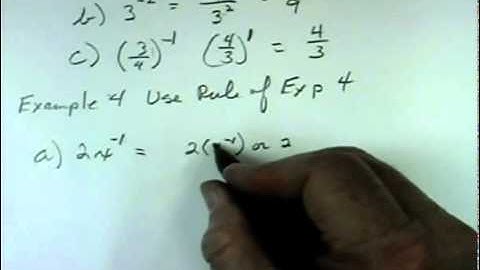 b) 3⁻² = 1/3² = 1/9
c) (3/4)⁻¹ (4/3)¹ = 4/3
Example 4 Use Rule of Exp 4
a) 2x⁻¹ = 2( ⁻¹) or 2